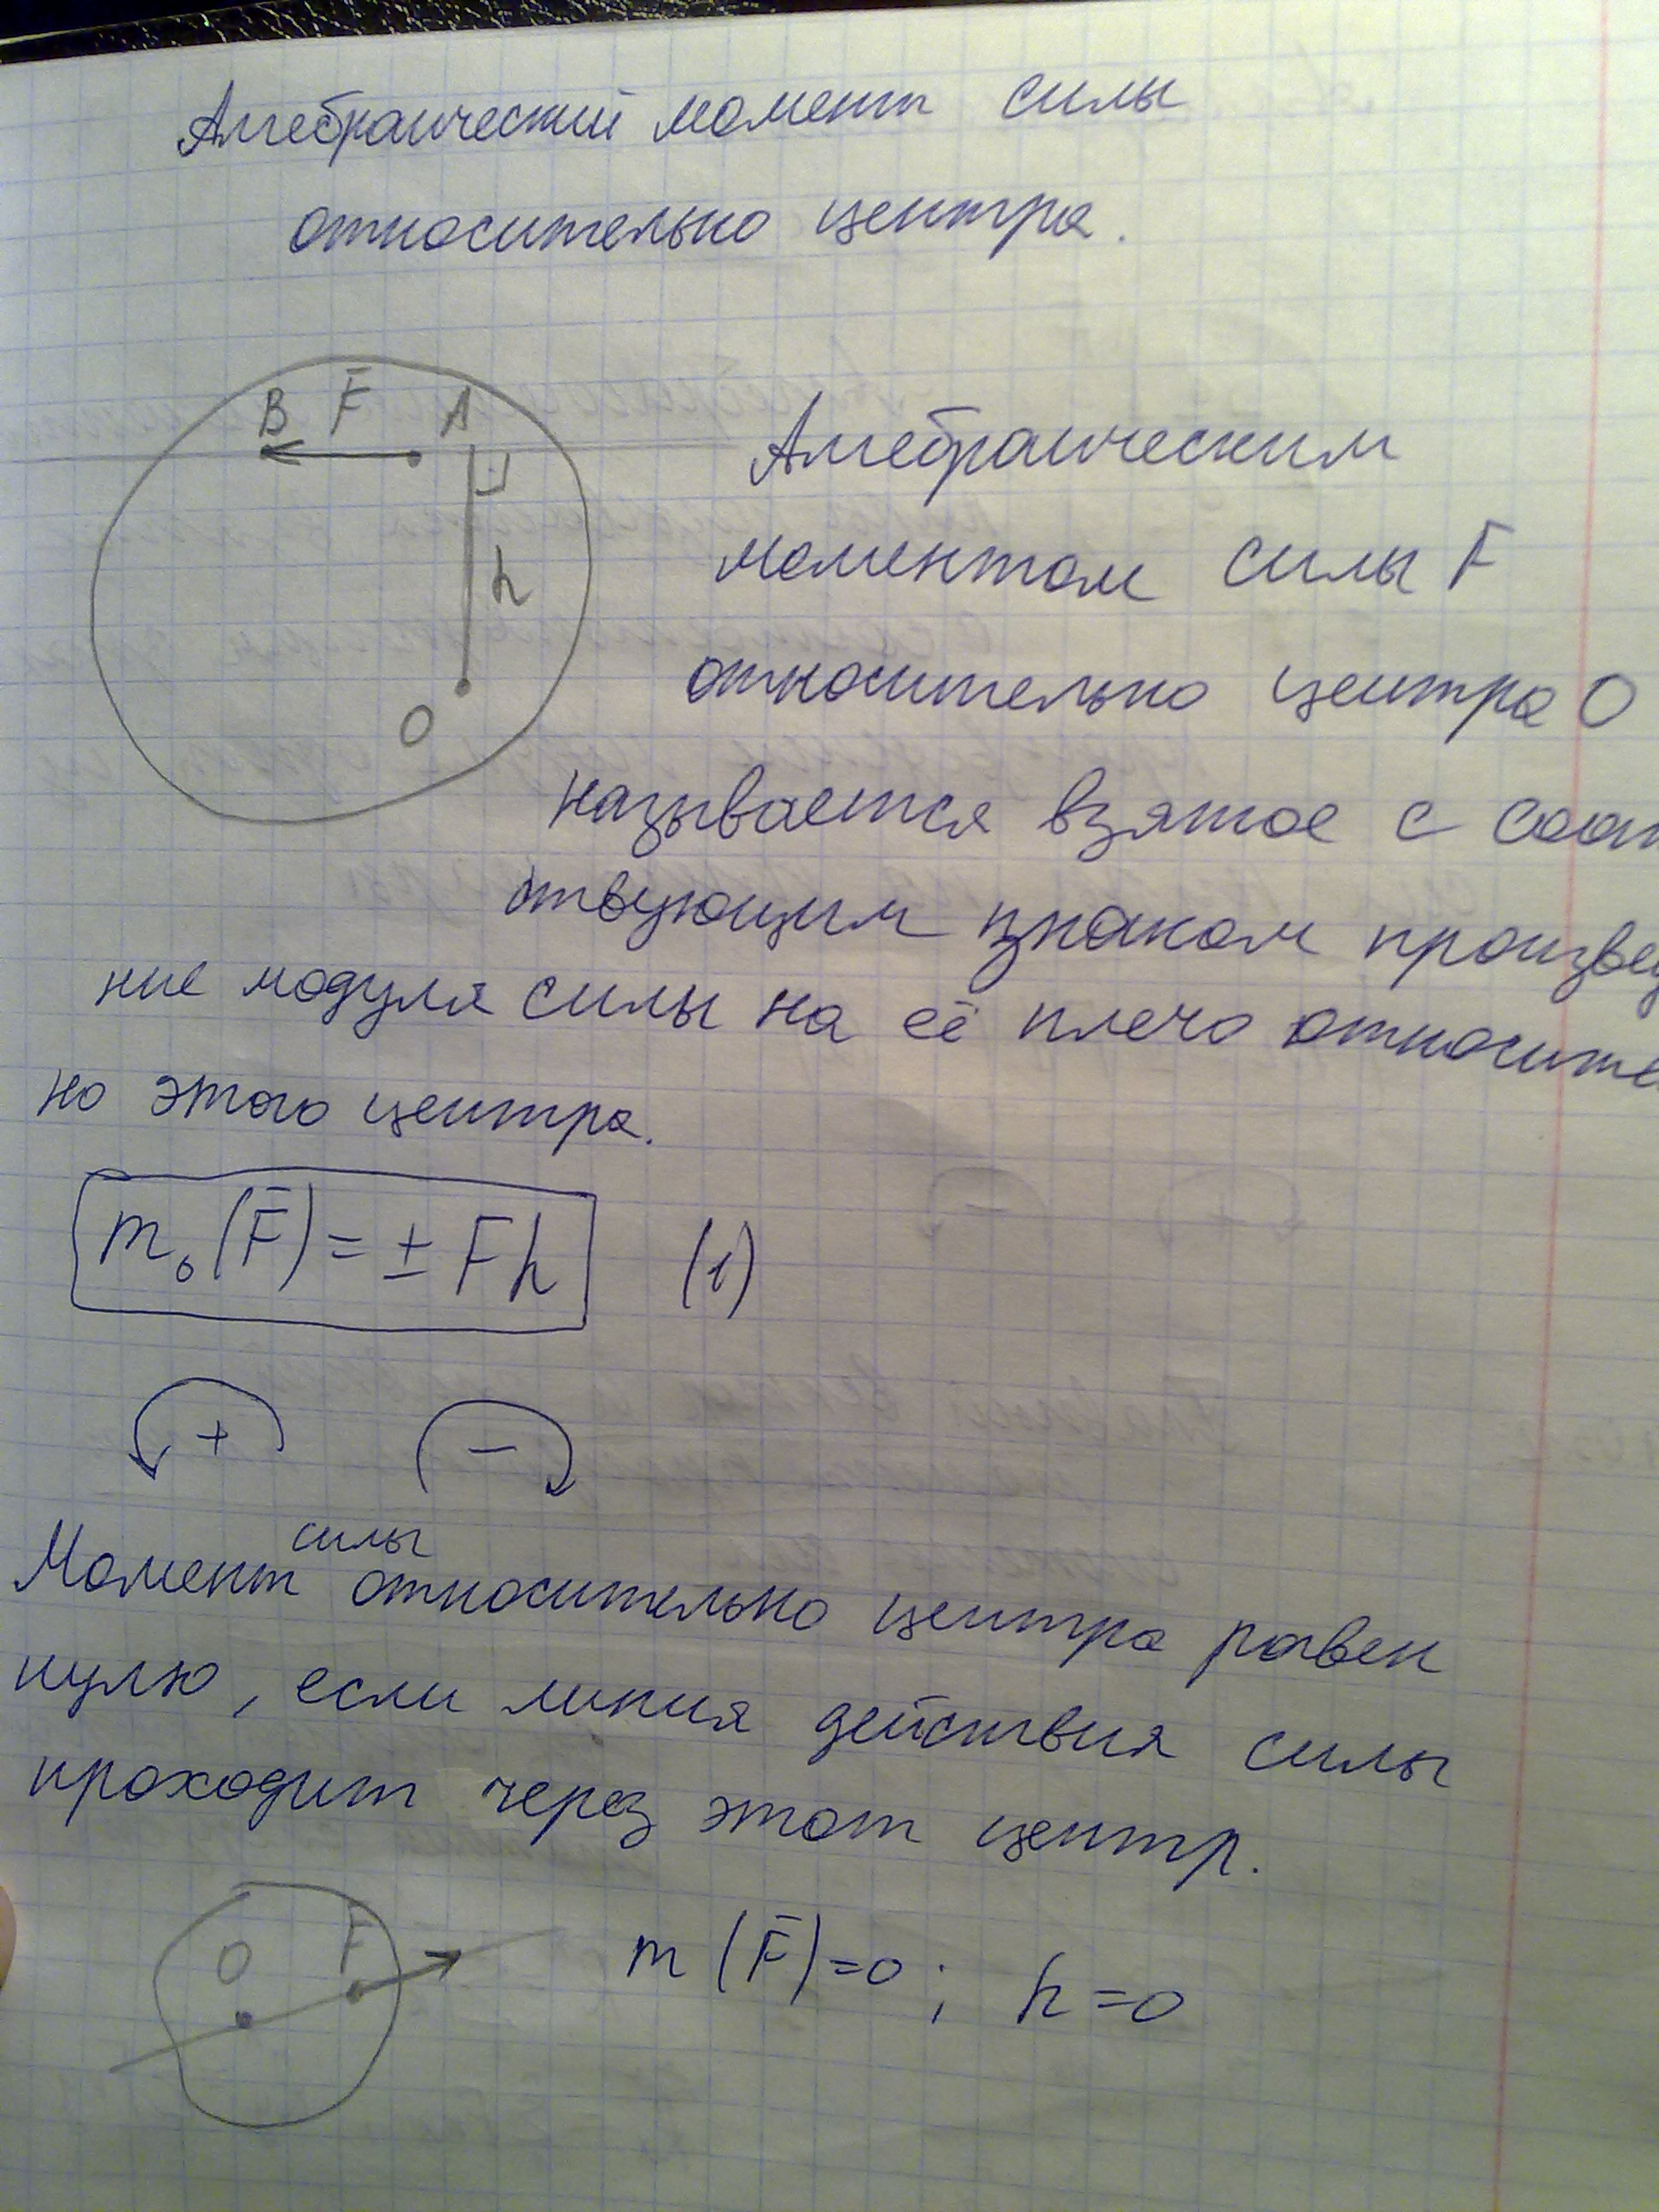 Алгебраический момент силы
относительно центра.
B F̄ A
h
O
Алгебраическим
моментом силы F
относительно центра O
называется взятое с соот
тствующим знаком произвед
ние модуля силы на её плечо относите
но этого центра.
m₀(F̄) = ± Fh (1)
+ −
силы
Момент относительно центра равен
нулю, если линия действия силы
проходит через этот центр.
O F̄
m(F̄)=0; h=0